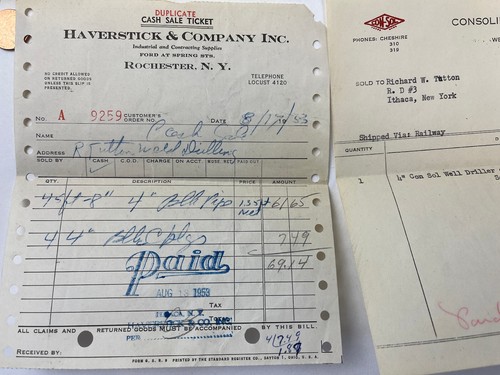 DUPLICATE
CASH SALE TICKET
HAVERSTICK & COMPANY INC.
Industrial and Contracting Supplies
FORD AT SPRING STS.
ROCHESTER, N. Y.
NO CREDIT ALLOWED
ON RETURNED GOODS
UNLESS THIS SLIP IS
PRESENTED.
TELEPHONE
LOCUST 4120
No. A 9259 CUSTOMER'S ORDER NO. DATE 8/13/53
NAME Cash Sale
ADDRESS R Tutton Well Drilling
SOLD BY CASH C.O.D. CHARGE ON ACCT. MDSE. RET. PAID OUT
QTY. DESCRIPTION PRICE AMOUNT
45 ft-8" 4" Blk Pipe 61 65
4 4" Blk Cplgs 7 49
69.14
Paid
AUG 13 1953
TAX
HAVERSTICK & CO. INC.
PER
TOTAL
ALL CLAIMS AND RETURNED GOODS MUST BE ACCOMPANIED BY THIS BILL.
RECEIVED BY:
4/7.49
1.87
PRINTED BY THE STANDARD REGISTER CO., DAYTON 1, OHIO, U. S. A.
CON-SOL
CONSOLI
PHONES: CHESHIRE
310
318
SOLD TO Richard W. Tutton
R. D #3
Ithaca, New York
Shipped Via: Railway
QUANTITY
1 ¼" Con Sol Well Driller